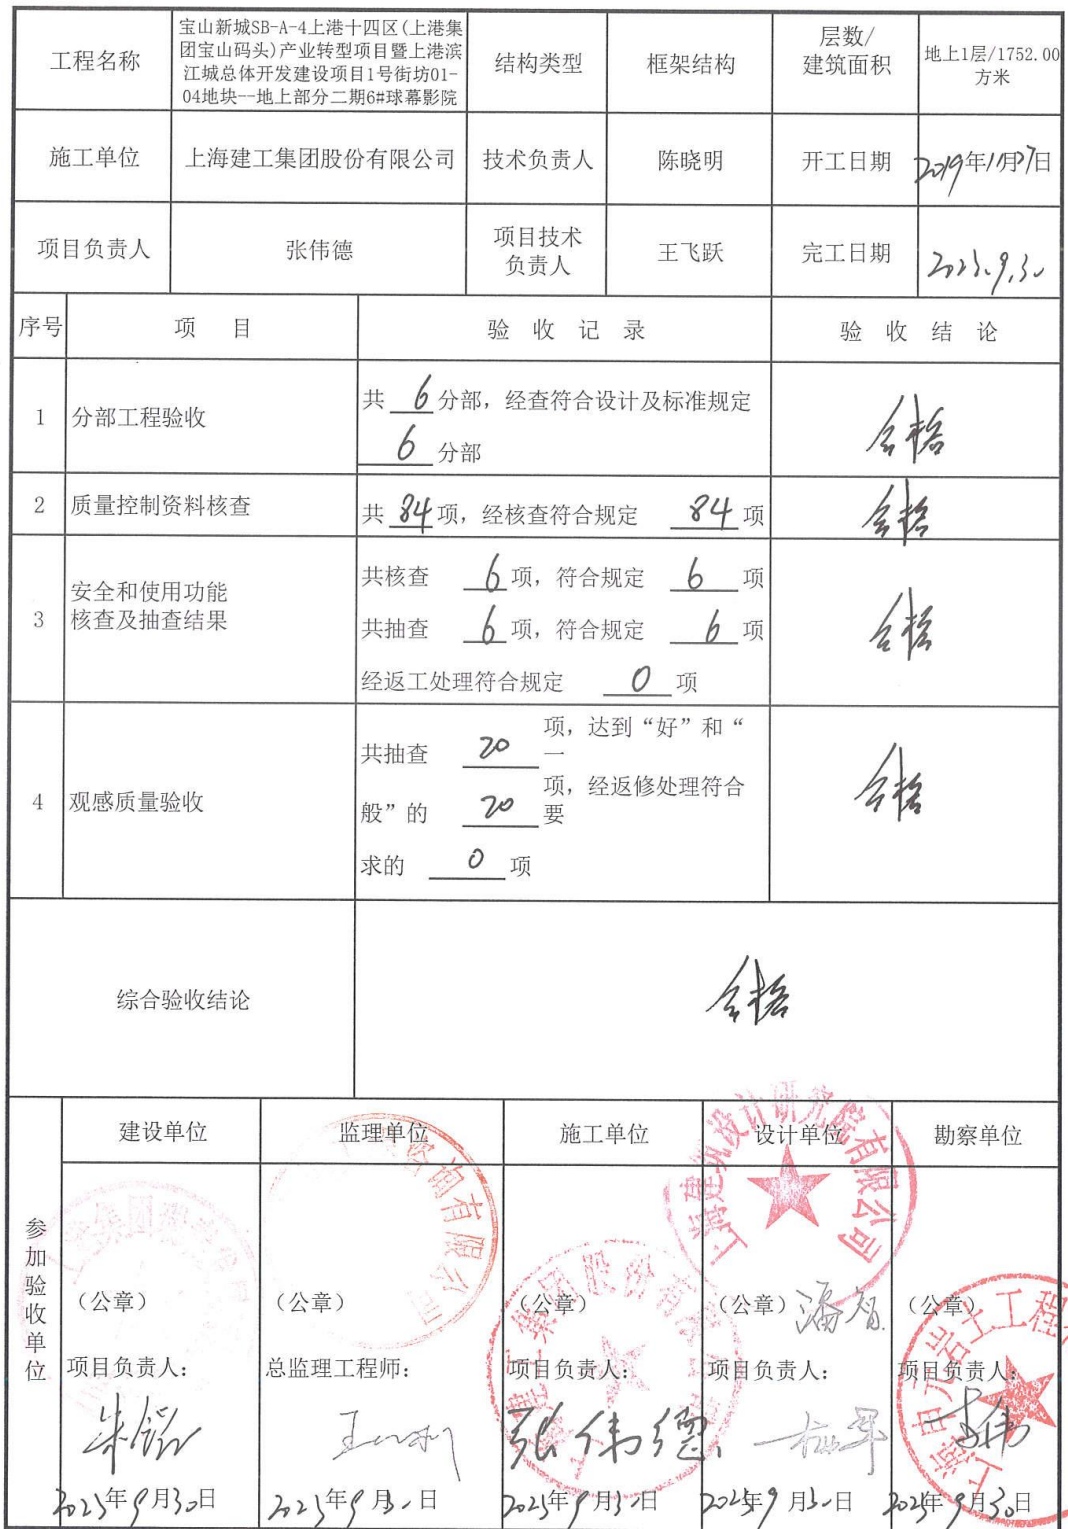 工程名称
宝山新城SB-A-4上港十四区(上港集
团宝山码头)产业转型项目暨上港滨
江城总体开发建设项目1号街坊01-
04地块--地上部分二期6#球幕影院
结构类型
框架结构
层数/
建筑面积
地上1层/1752.00
方米
施工单位
上海建工集团股份有限公司
技术负责人
陈晓明
开工日期
2019年11月27日
项目负责人
张伟德
项目技术
负责人
王飞跃
完工日期
2023.9.30
序号
项 目
验 收 记 录
验 收 结 论
1
分部工程验收
共 6 分部，经查符合设计及标准规定
6 分部
合格
2
质量控制资料核查
共 84 项，经核查符合规定 84 项
合格
3
安全和使用功能
核查及抽查结果
共核查 6 项，符合规定 6 项
共抽查 6 项，符合规定 6 项
经返工处理符合规定 0 项
合格
4
观感质量验收
共抽查 20 项，达到“好”和“一
般”的 20 项，经返修处理符合要
求的 0 项
合格
综合验收结论
合格
参加验收单位
建设单位
监理单位
施工单位
设计单位
勘察单位
（公章）
（公章）
（公章）
（公章）
（公章）
项目负责人：
总监理工程师：
项目负责人：
项目负责人：
项目负责人：
张伟德
2023年9月30日
2023年9月30日
2023年9月30日
2023年9月30日
2023年9月30日